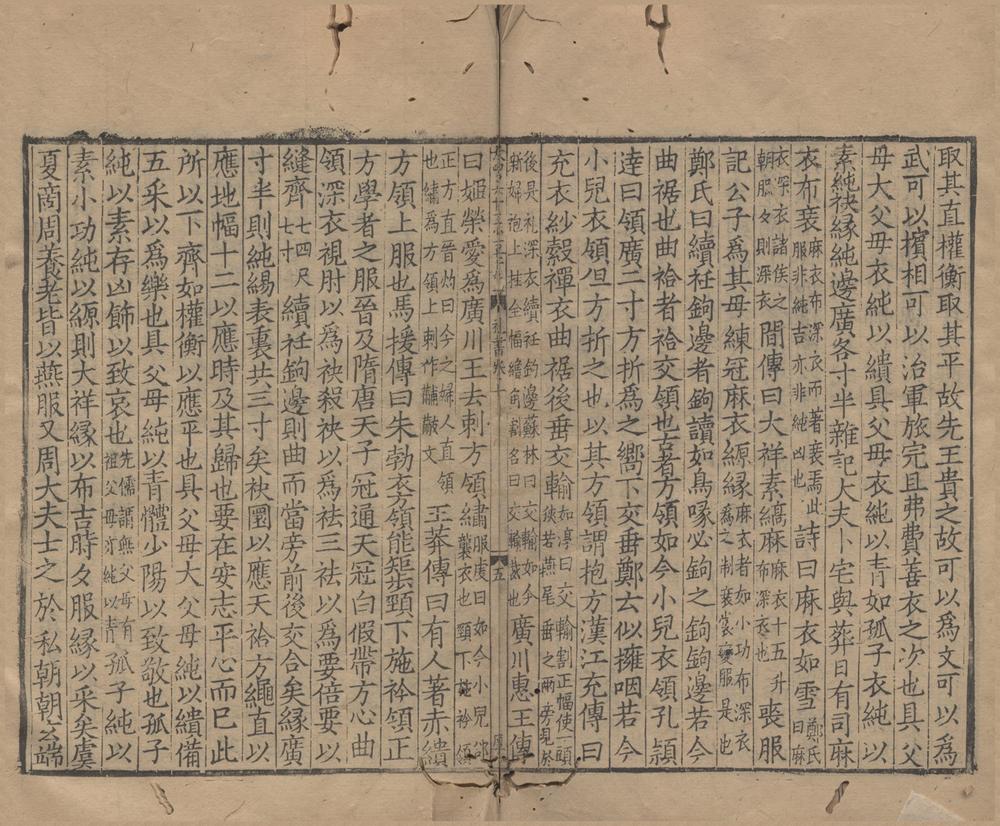 取其直權衡取其平故先王貴之故可以爲文可以爲
武可以擯相可以治軍旅完且弗費善衣之次也具父
母大父母衣純以繢具父母衣純以青如孤子衣純以
素純袂緣純邊廣各寸半雜記大夫卜宅與葬日有司麻
衣布衰麻衣布深衣而著衰焉此服非純吉亦非純凶也詩曰麻衣如雪鄭氏曰麻
衣深衣諸侯之朝服夕則深衣閒傳曰大祥素縞麻麻衣十五升布深衣也喪服
記公子爲其母練冠麻衣縓緣麻衣者如小功布深衣爲之制衰裳變服是也
鄭氏曰續衽鉤邊者鉤讀如鳥喙必鉤之鉤鉤邊若今
曲裾也曲袷者袷交領也古者方領如今小兒衣領孔頴
逹曰領廣二寸方折爲之嚮下交垂鄭云似擁咽若今
小兒衣領但方折之也以其方領謂抱方漢江充傳曰
充衣紗縠襌衣曲裾後垂交輸如淳曰交輸割正幅使一頭狹若燕尾垂之兩旁見於
後是礼深衣續衽鉤邊蘇林曰交輸如今新婦袍上挂全幅繒角割名曰交輸裁也廣川惠王傳
禮書卷 五
曰姬榮愛爲廣川王去刺方領繡服虔曰如今小兒郤襲衣也頸下施衿領
正方直晉灼曰今之婦人直領也繡爲方領上刺作黼黻文王莽傳曰有人著赤繢
方領上服也馬援傳曰朱勃衣方領能矩步頸下施衿領正
方學者之服晉及隋唐天子冠通天冠白假帶方心曲
領深衣視肘以爲袂殺袂以爲袪三袪以爲要倍要以
縫齊七尺四寸續衽鉤邊則曲而當旁前後交合矣緣廣
寸半則純緆表裏共三寸矣袂圜以應天袷方繩直以
應地幅十二以應時及其歸也要在安志平心而巳此
所以下齊如權衡以應平也具父母大父母純以繢備
五采以爲樂也具父母純以青體少陽以致敬也孤子
純以素存凶飾以致哀也先儒謂無父母有祖父母亦純以青孤子純以
素小功純以縓則大祥緣以布吉時夕服緣以采矣虞
夏商周養老皆以燕服又周大夫士之於私朝朝玄端